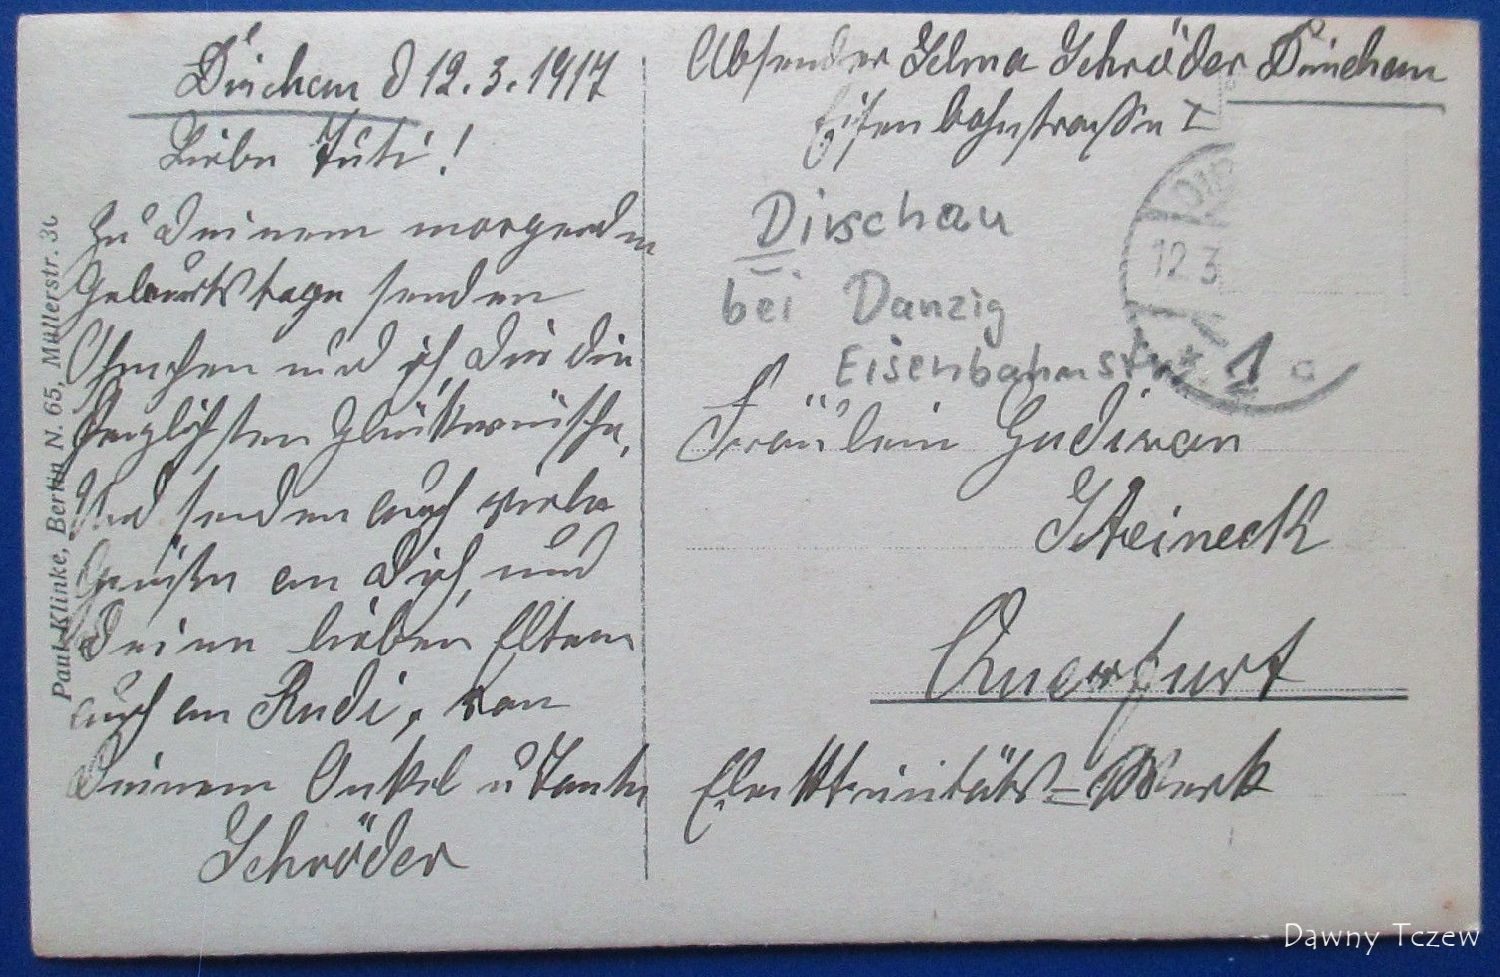 Dirschau d 12.3.1917
Liebe Tuti!
Zu Deinem morgenden
Geburtstage senden
Ohmchen und ich Dir die
herzlichsten Glückwünsche,
Und senden auch viele
Grüße an Dich, und
Deine lieben Eltern
auch an Rudi, von
Deinem Onkel u Tante
Schröder
Paul Klinke, Berlin N. 65, Müllerstr. 30
Absender Selma Schröder Dirschau
Eisenbahnstraße I
Dirschau
bei Danzig
Eisenbahnstr.
DIR
12 3
* 1 a
Fräulein Gudivan
Steineck
Querfurt
Elektrizitäts=Werk
Dawny Tczew